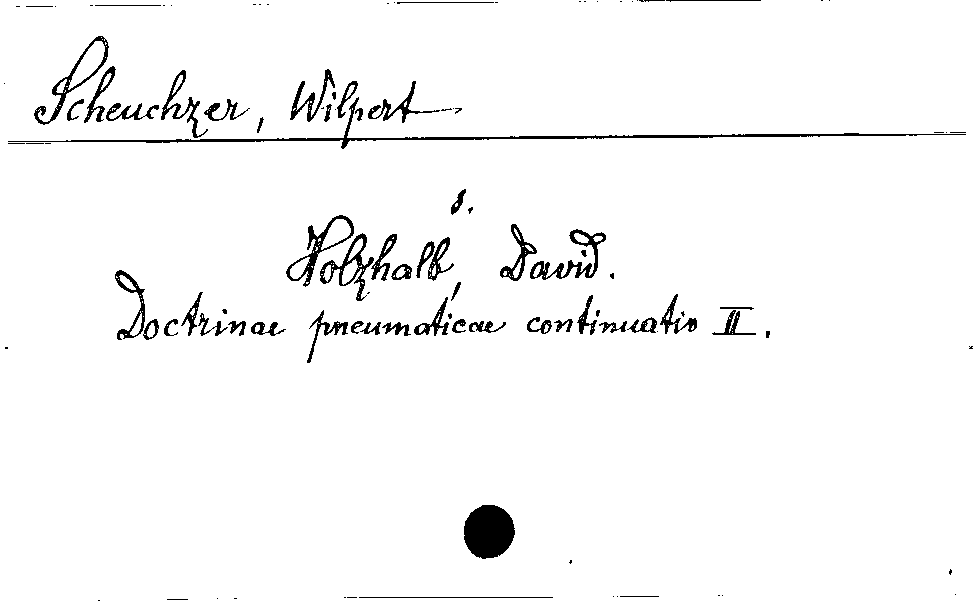 Scheuchzer, Wilpert
s.
Holzhalb, David.
Doctrinae pneumaticae continuatio II.